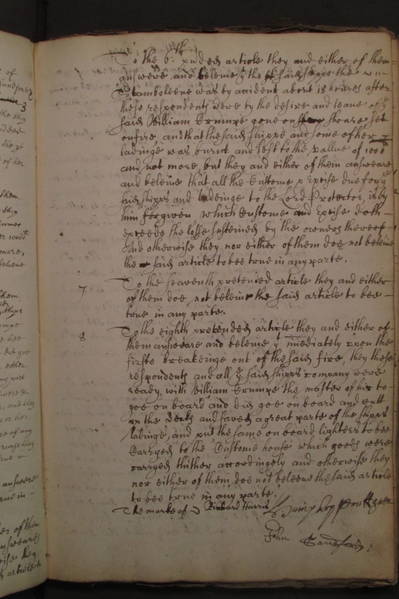 To the 6th p̱tnded article they and either of them
answere and beleeve yt the sd shippe the
was by accident about 18 houres after
these respondents were by the desire and leave of ye
said William Crumpe gone on shoare, set
on fire, and that the said shippe and some of her
ladeinge was burnt and lost to the vallue of 100li
and not more, but they and either of them answeare
and beleeve that all the Custome & Excise due for ye
sd shipps ladeinge to the Lord Protector, is by
him forgiven which Custome and Excise doth
exceede the losse susteined by the owners thereof
and otherwise they nor either of them doe not beleeve
the said article to bee true in any parte.
7 To the seaventh pretended article they and either
of them doe not beleive the said article to bee
true in any parte.
8 To the eighth pretended article they and either of
them answeare and beleeve yt imediately upon the
firste breakeinge out of the said fire, they these
respondents and all ye said shipps company were
ready with William Crumpe the master of her to
goe on board and did goe on board and cutt
up the Decks and saved a great parte of the shipps
ladeinge, and put the same on board lighters to bee
carryed to the Custome house which goods were
carryed thither accordingly and otherwise they
nor either of them doe not beleeve the said article
to bee true in any parte.
The marke of Richard Harris
John